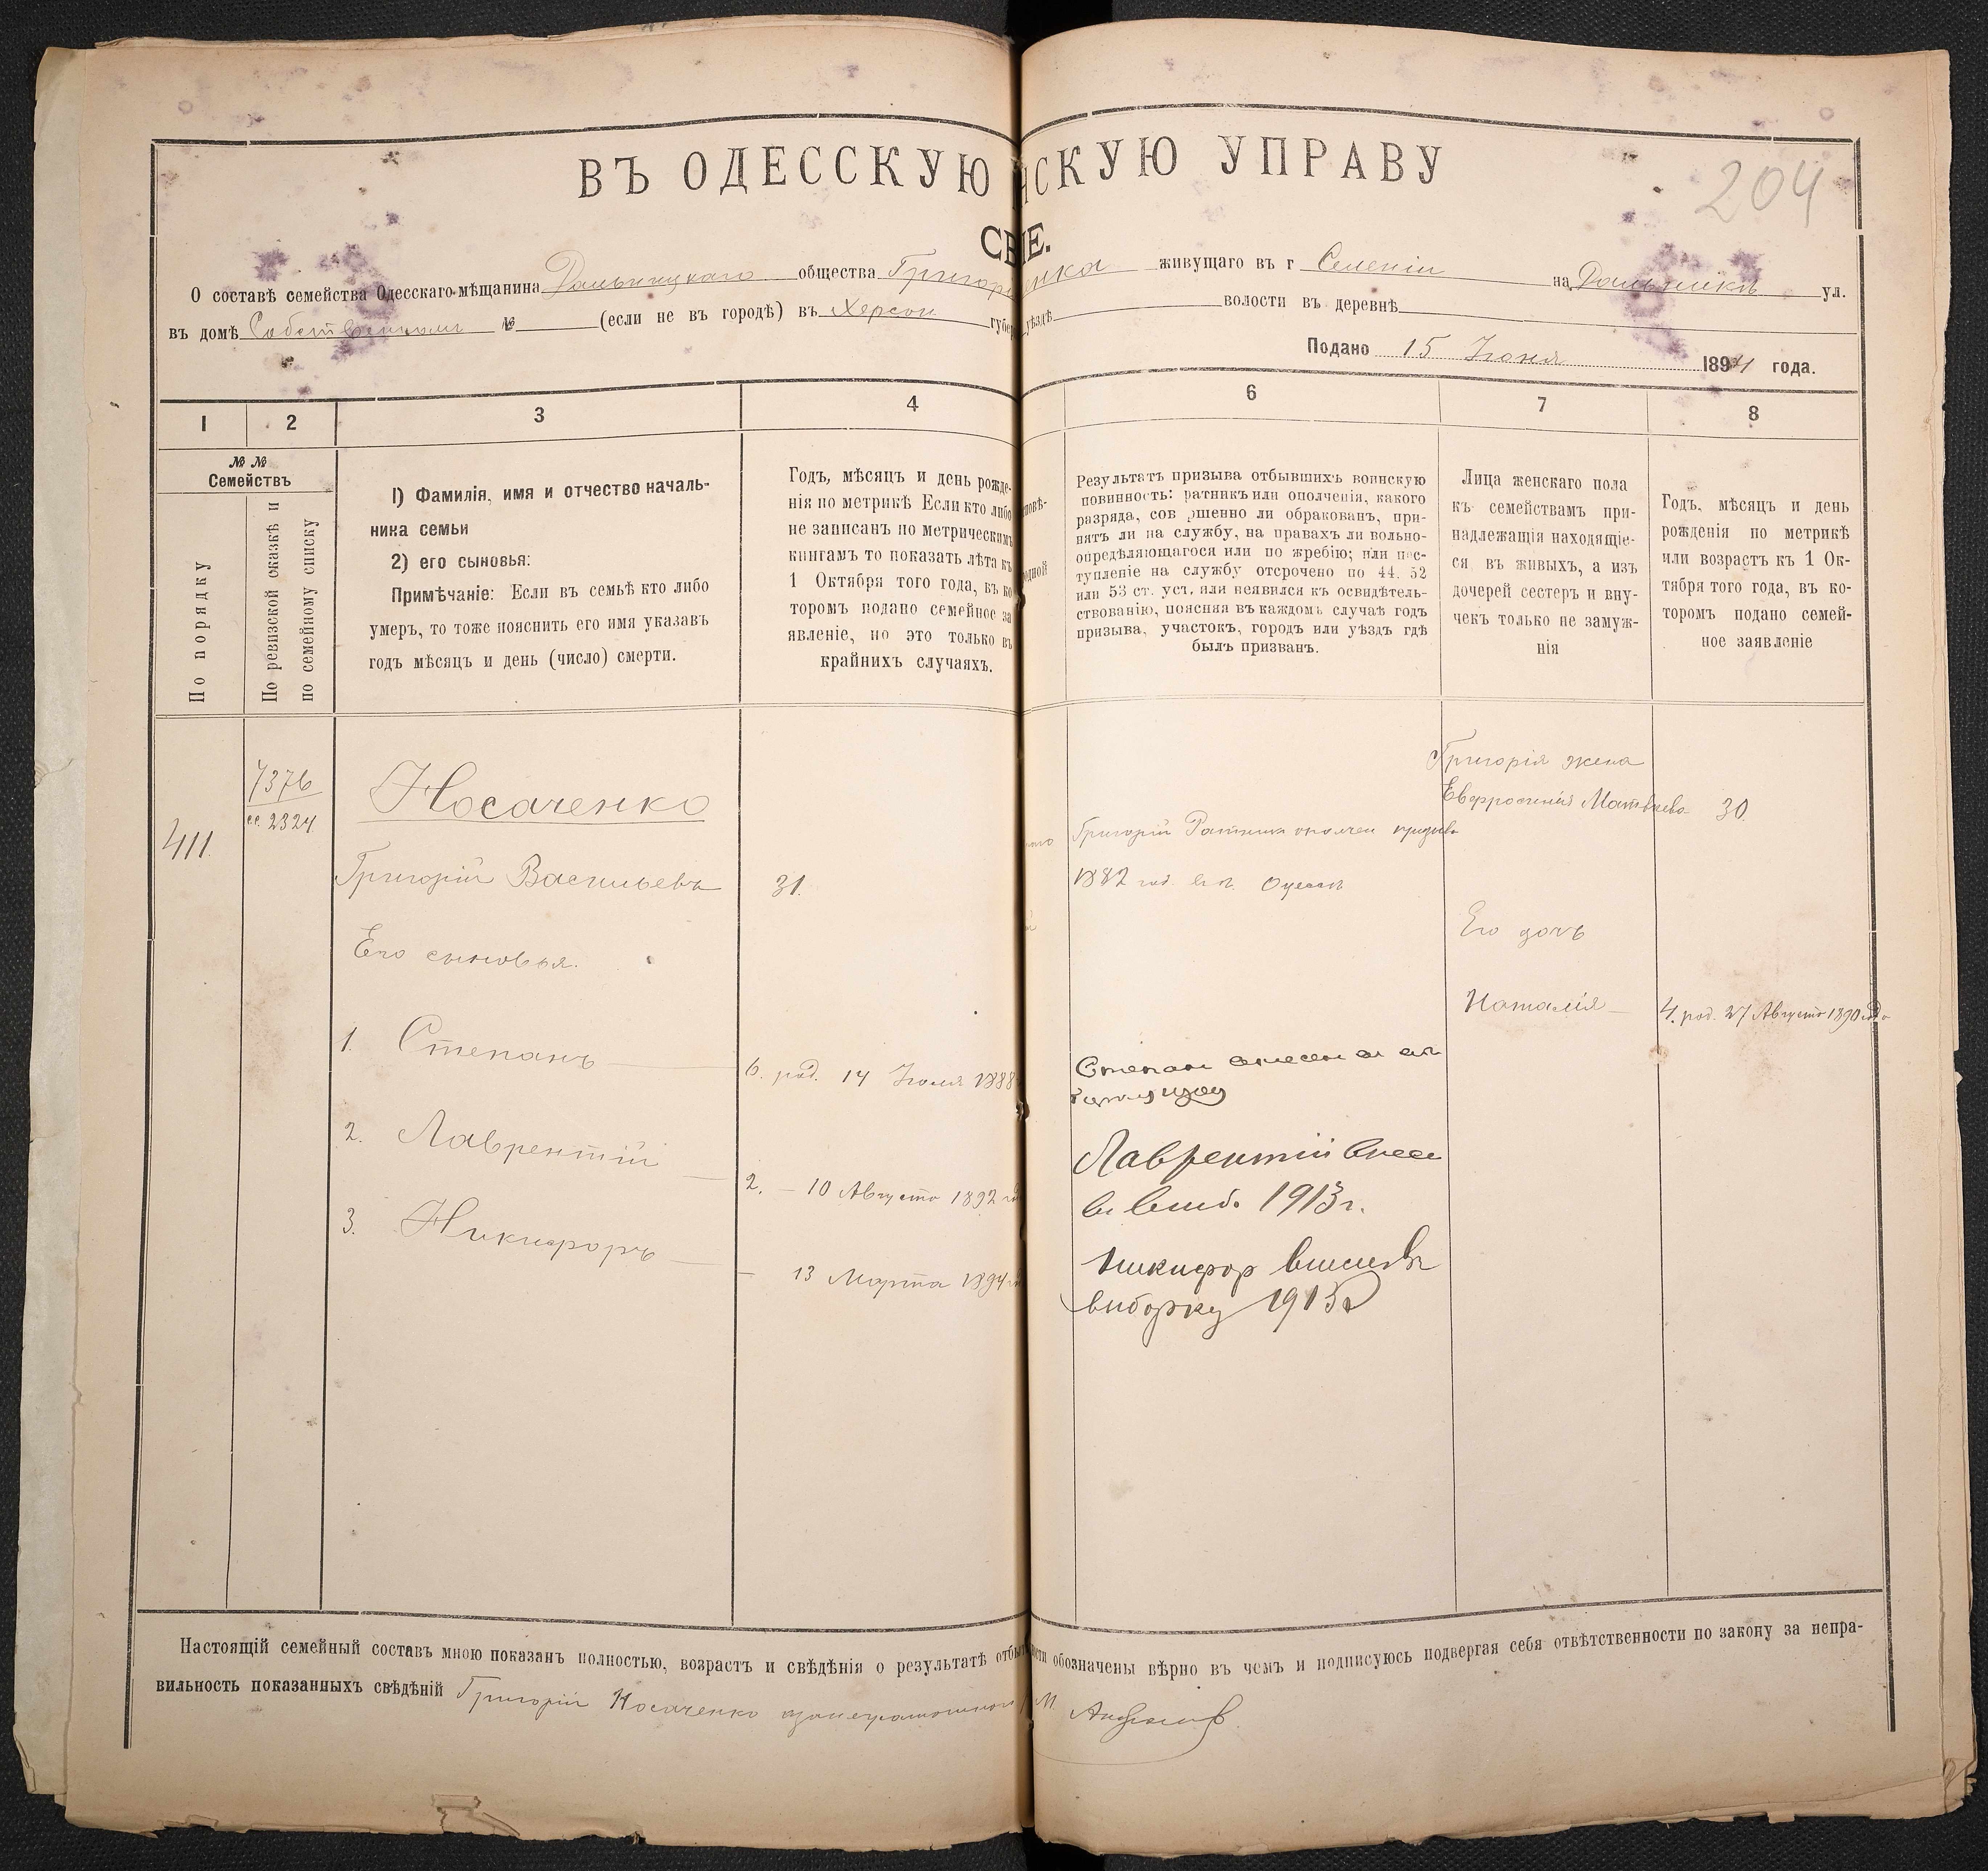 204
ВЪ ОДЕССКУЮ НСКУЮ УПРАВУ
О составѣ семейства Одесскаго мѣщанина Дальницкаго общества Григор енка живущаго въ г Селеніи на Дальникѣ ул.
въ домѣ Собственномъ № (если не въ городѣ) въ Херсон губер уѣздѣ волости въ деревнѣ
Подано 15 Іюня 1894 года.
1 2 3 4 6 7 8
№ № Семействъ
По порядку
По ревизской сказкѣ и
по семейному списку
1) Фамилія, имя и отчество началь-
ника семьи
2) его сыновья:
Примѣчаніе: Если въ семьѣ кто либо
умеръ, то тоже пояснить его имя указавъ
годъ мѣсяцъ и день (число) смерти.
Годъ, мѣсяцъ и день рожде-
нія по метрикѣ Если кто либо
не записанъ по метрическимъ
книгамъ то показать лѣта къ
1 Октября того года, въ ко
торомъ подано семейное за
явленіе, но это только въ
крайнихъ случаяхъ.
Результатъ призыва отбывшихъ воинскую
повинность: ратникъ или ополченія, какого
разряда, сов ршенно ли обракованъ, при-
нятъ ли на службу, на правахъ ли вольно-
опредѣляющагося или по жребію; или пос-
тупленіе на службу отсрочено по 44. 52
или 53 ст. уст. или неявился къ освидѣтель-
ствованію, поясняя въ каждомъ случаѣ годъ
призыва, участокъ, городъ или уѣздъ гдѣ
былъ призванъ.
Лица женскаго пола
къ семействамъ при-
надлежащія находящіе-
ся въ живыхъ, а изъ
дочерей сестеръ и вну-
чекъ только не замуж-
нія
Годъ, мѣсяцъ и день
рожденія по метрикѣ
или возрастъ къ 1 Ок-
тября того года, въ ко-
торомъ подано семей-
ное заявленіе
411.
7376
сс. 2324
Носаченко
Григорій Васильевъ 31.
Его сыновья.
1. Степанъ 6. род. 14 Іюля 1888
2. Лаврентій 2. — 10 Августа 1892
3. Никифоръ — 13 Марта 1894
Григорій Ратникъ ополчен призыва
1882 год. въ г. Одессѣ
Степан внесен в
Лаврентій внесе
в выб. 1913 г.
Никифор внесенъ
выборку 1915
Григорія жена
Евфросинія Матвѣева 30.
Его дочь
Наталія — 4. род. 27 Августа 1890 года
Настоящій семейный составъ мною показанъ полностью, возрастъ и свѣдѣнія о результатѣ отбы ости обозначены вѣрно въ чемъ и подписуюсь подвергая себя отвѣтственности по закону за непра-
вильность показанныхъ свѣдѣній Григорій Носаченко